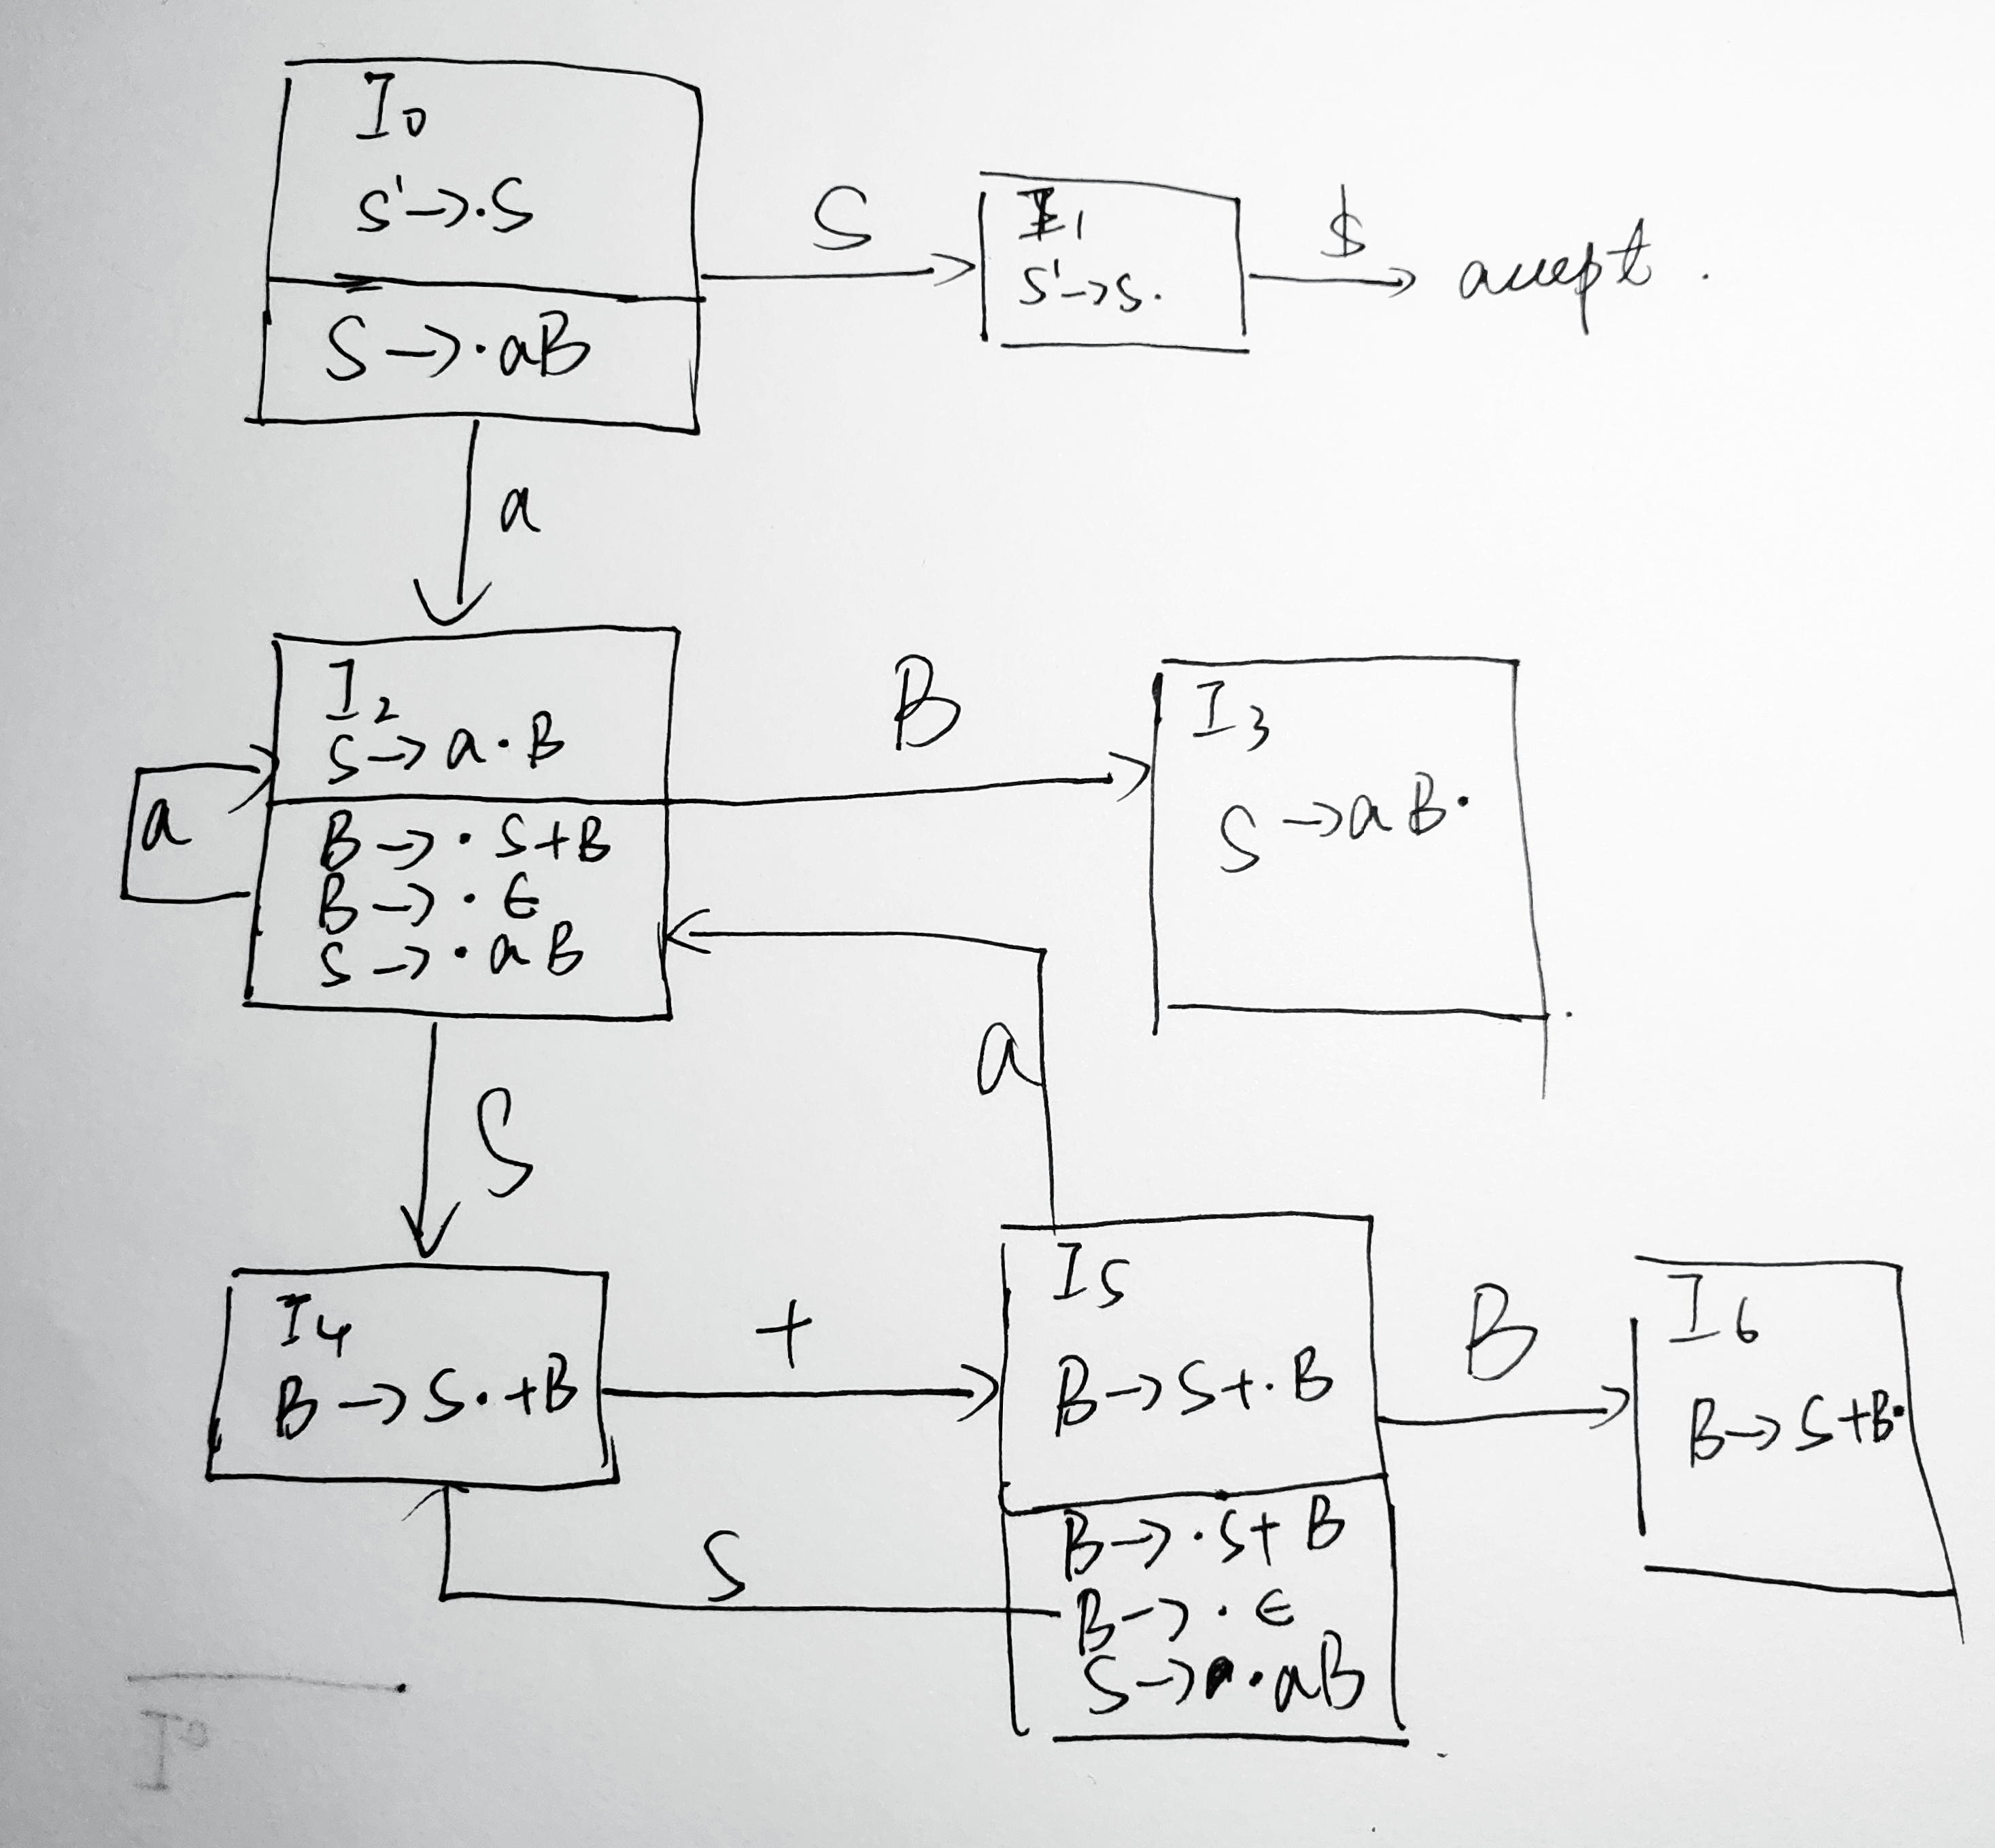 I0
S'→.S
S→·aB
S
I1
S'→S.
$
accept.
a
I2
S→a·B
B→·S+B
B→·ϵ
S→·aB
a
B
I3
S→aB·
a
S
I4
B→S·+B
+
I5
B→S+.B
B→·S+B
B→·ϵ
S→·aB
S
B
I6
B→S+B·